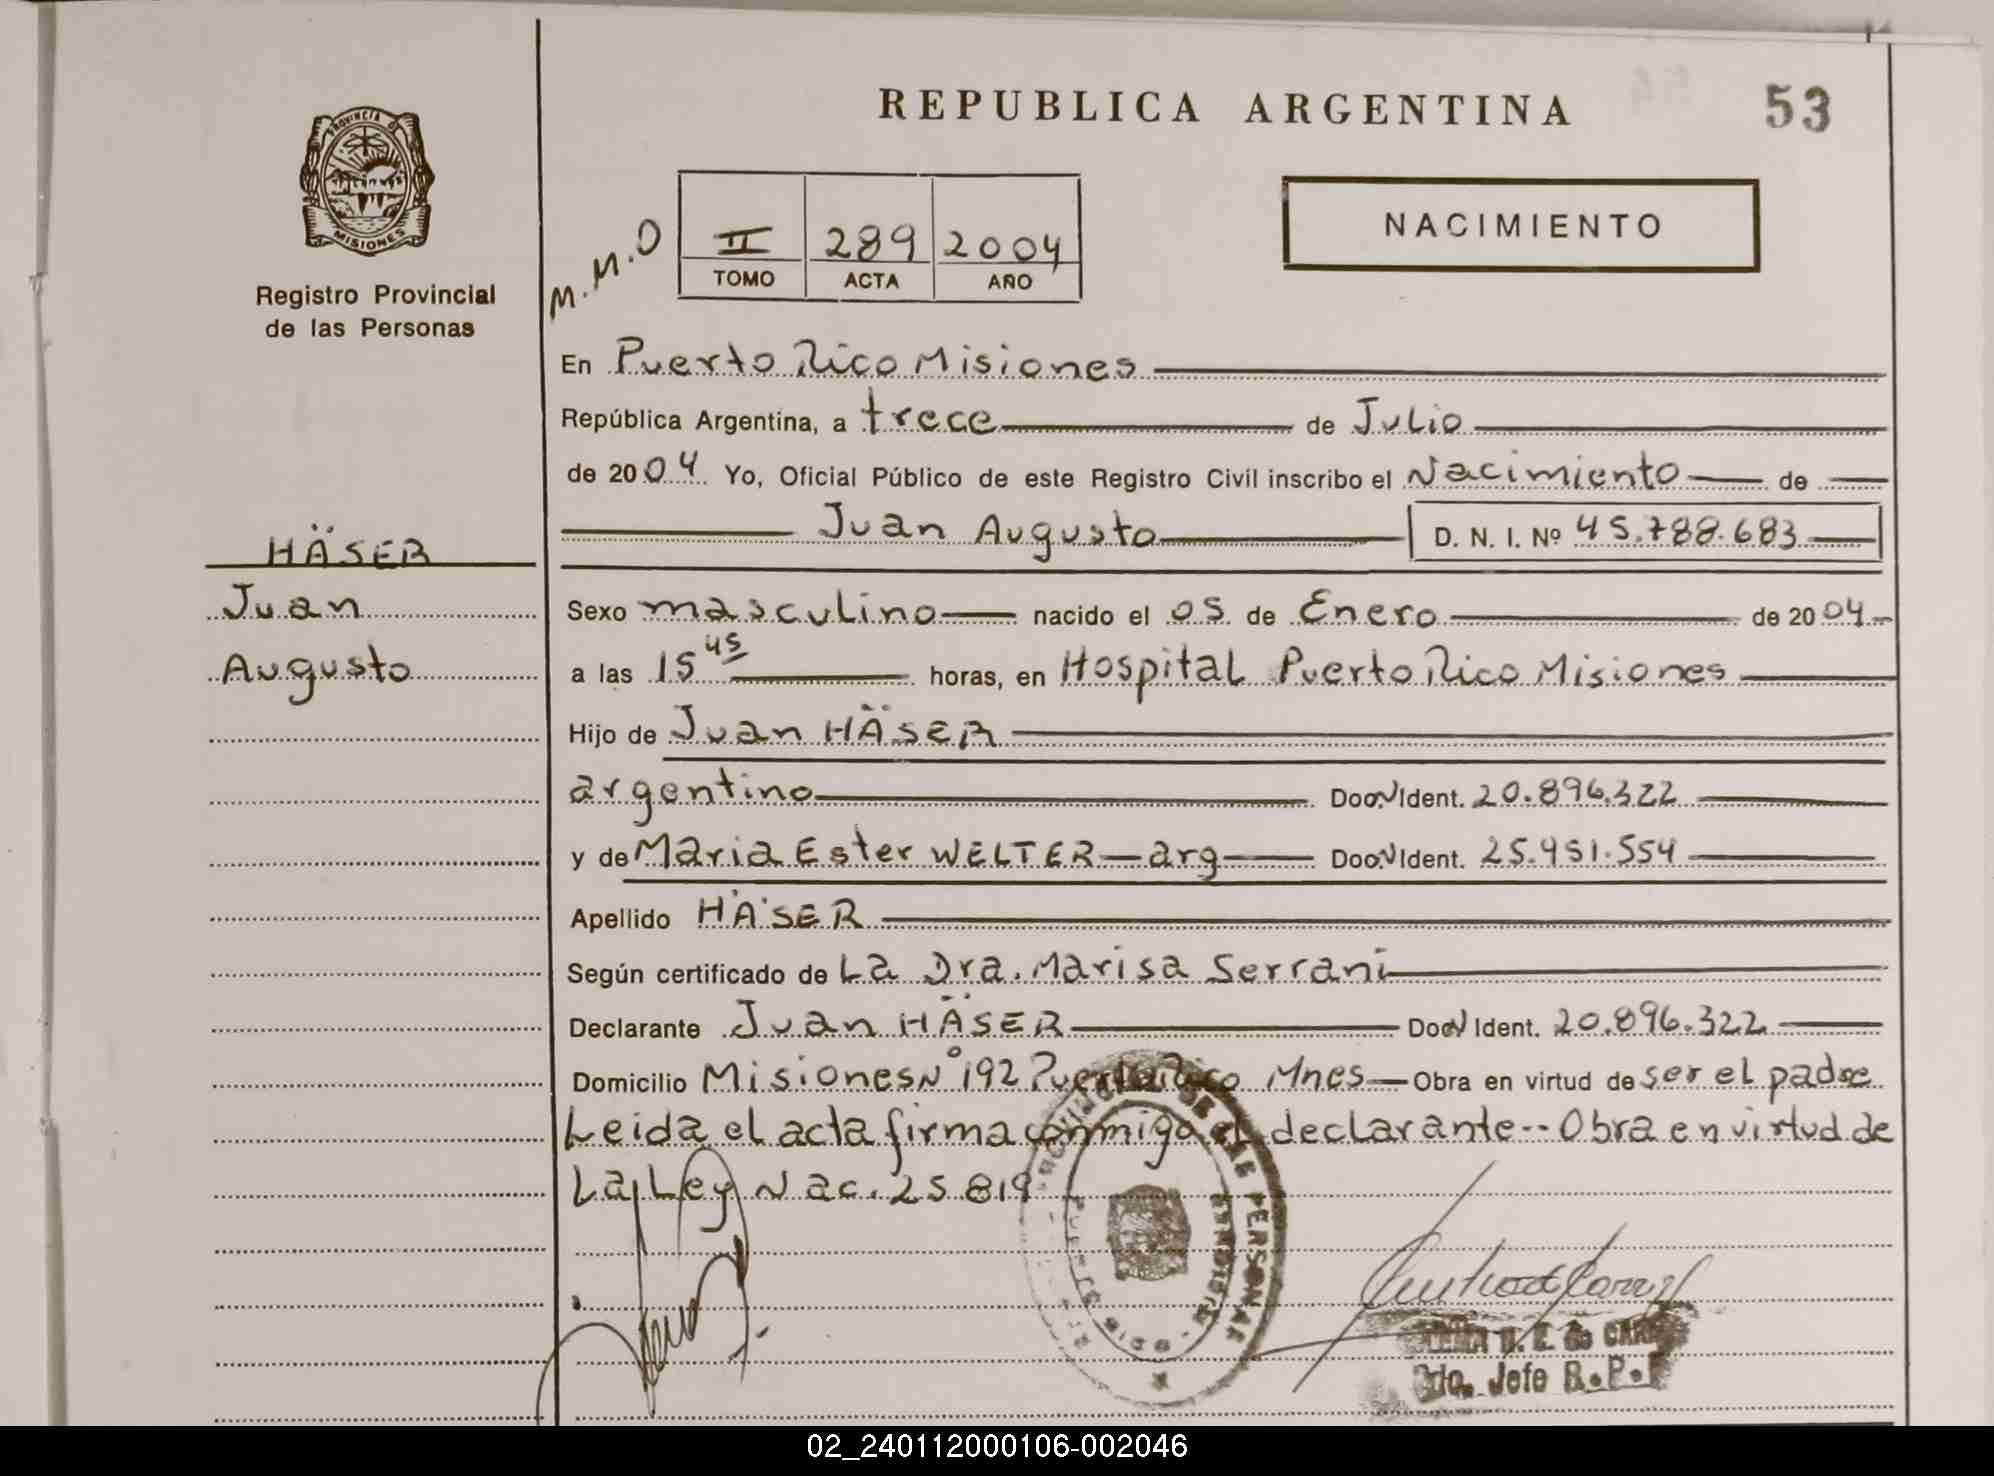 REPUBLICA ARGENTINA
53
PROVINCIA DE
MISIONES
Registro Provincial
de las Personas
M.M.O
II 289 2004
TOMO ACTA AÑO
NACIMIENTO
En Puerto Rico Misiones
República Argentina, a trece de Julio
de 2004 Yo, Oficial Público de este Registro Civil inscribo el Nacimiento de
Juan Augusto D. N. I. Nº 45.788.683
HÄSER
Juan
Augusto
Sexo masculino nacido el 05 de Enero de 2004
a las 15 45 horas, en Hospital Puerto Rico Misiones
Hijo de Juan HÄSER
argentino Doc. N Ident. 20.896.322
y de Maria Ester WELTER - arg Doc. N Ident. 25.951.554
Apellido HÄSER
Según certificado de La Dra. Marisa Serrani
Declarante Juan HÄSER Doc N Ident. 20.896.322
Domicilio Misiones Nº 192 Puerto Rico Mnes Obra en virtud de ser el padre
Leida el acta firma conmigo el declarante -- Obra en virtud de
La Ley Nac. 25819
DE LAS PERSONAS
Jefe R.P.
02_240112000106-002046